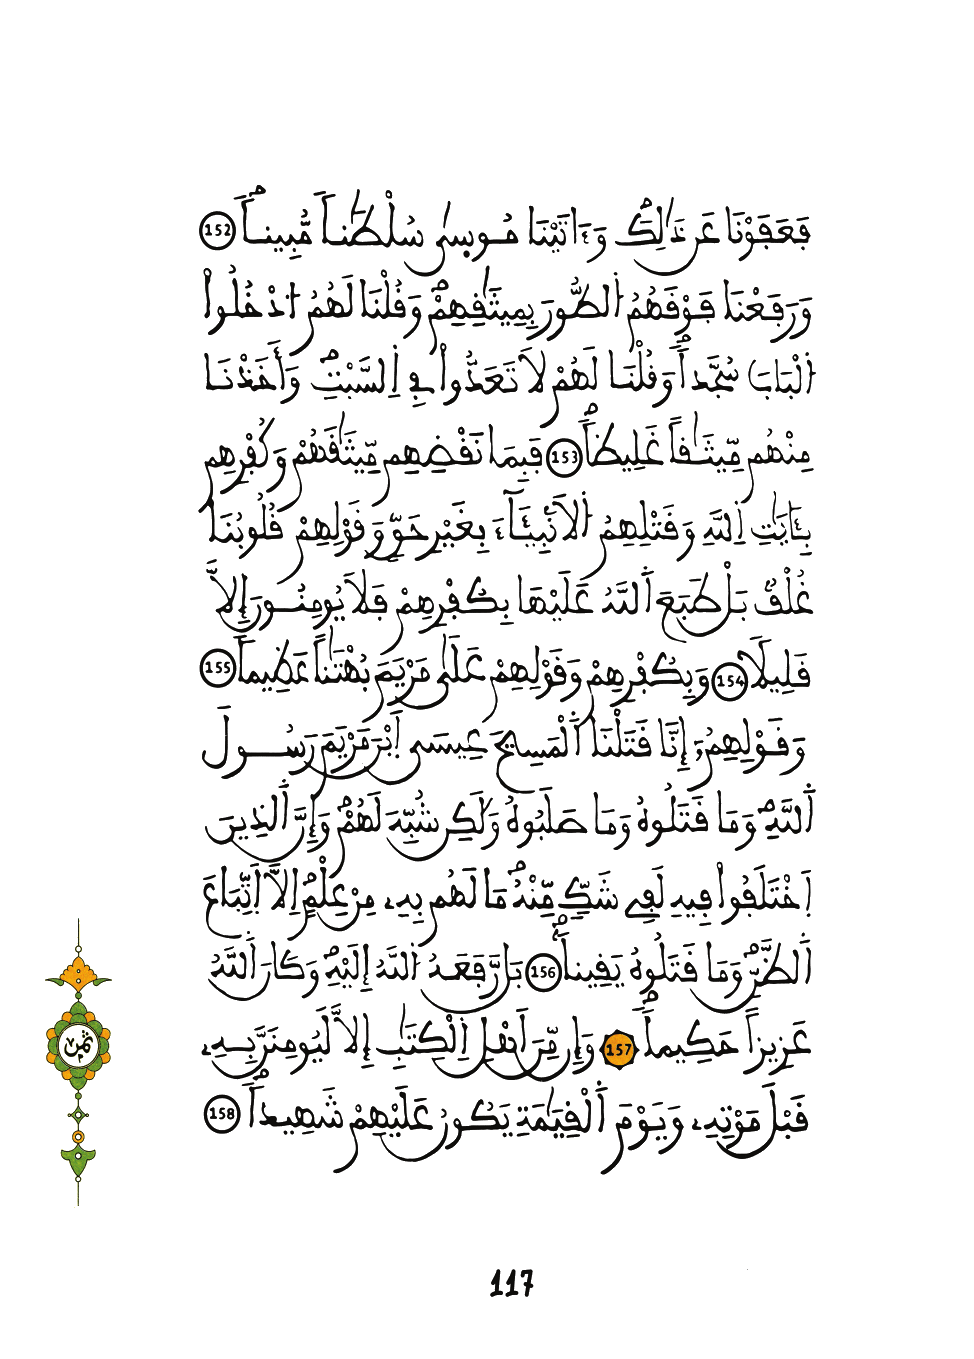 فَعَفَوْنَا عَن ذَٰلِكَ وَءَاتَيْنَا مُوسىٰ سُلْطَٰناً مُّبِيناً 152
وَرَفَعْنَا فَوْقَهُمُ اُلطُّورَ بِمِيثَٰقِهِمْ وَقُلْنَا لَهُمُ اُدْخُلُواْ
اُلْبَابَ سُجَّداً وَقُلْنَا لَهُمْ لَا تَعَدُّواْ فِے اِلسَّبْتِ وَأَخَذْنَا
مِنْهُم مِّيثَٰقاً غَلِيظاً 153 فَبِمَا نَقْضِهِم مِّيثَٰقَهُمْ وَكُفْرِهِم
بِـَٔايَٰتِ اِللَّهِ وَقَتْلِهِمُ اُلَانۢبِيَآءَ بِغَيْرِ حَقّٖ وَقَوْلِهِمْ قُلُوبُنَا
غُلْفُۢ بَلْ طَبَعَ اَللَّهُ عَلَيْهَا بِكُفْرِهِمْ فَلَا يُومِنُونَ إِلَّا
قَلِيلًا 154 وَبِكُفْرِهِمْ وَقَوْلِهِمْ عَلَىٰ مَرْيَمَ بُهْتَٰناً عَظِيماً 155
وَقَوْلِهِمُۥٓ إِنَّا قَتَلْنَا اَلْمَسِيحَ عِيسَى اَبْنَ مَرْيَمَ رَسُولَ
اَللَّهِ وَمَا قَتَلُوهُ وَمَا صَلَبُوهُ وَلَٰكِن شُبِّهَ لَهُمْ وَإِنَّ اَلذِينَ
اَخْتَلَفُواْ فِيهِ لَفِے شَكّٖ مِّنْهُ مَا لَهُم بِهِۦ مِنْ عِلْمٍ اِلَّا اَتِّبَاعَ
اَلظَّنِّ وَمَا قَتَلُوهُ يَقِيناً 156 بَل رَّفَعَهُ اُللَّهُ إِلَيْهِ وَكَانَ اَللَّهُ
عَزِيزاً حَكِيماً 157 وَإِن مِّنَ اَهْلِ اِلْكِتَٰبِ إِلَّا لَيُومِنَنَّ بِهِۦ
قَبْلَ مَوْتِهِۦ وَيَوْمَ اَلْقِيَٰمَةِ يَكُونُ عَلَيْهِمْ شَهِيداً 158
ثمن
117